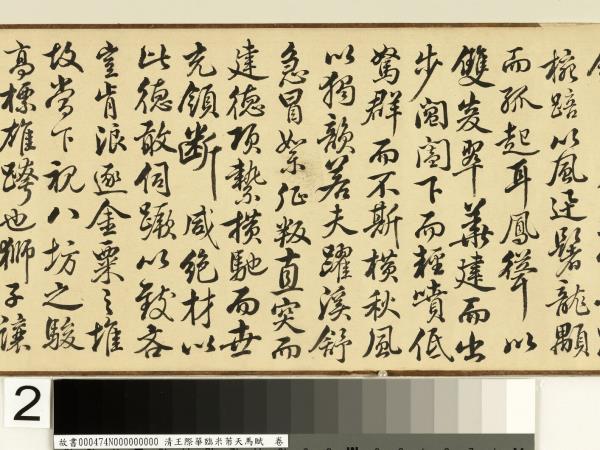 椀踣以風迅鬐龍顒
而孤起耳鳳聳以
雙峻翠華建而出
步閶闔下而輕噴低
駑群而不斯橫秋風
以獨韻若夫躍溪舒
急冒絮征叛直突而
建德項縶橫馳而世
充領斷咸絕材以
比德敢伺蹶以致吝
豈肯浪逐金粟之堆
故當下視八坊之駿
高標雄跨也獅子讓
2
故書000474N000000000 清王際華臨米芾天馬賦 卷